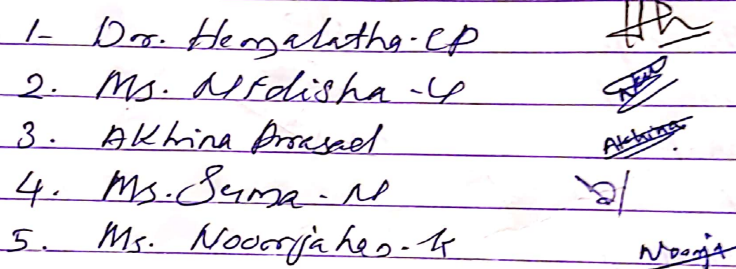 1- Dr. Hemalatha. CP
2. Ms. Nidisha - 
3. Akhina Prasad Akhina
4. Ms. Suma - N
5. Ms. Noorjahan - K Noorja